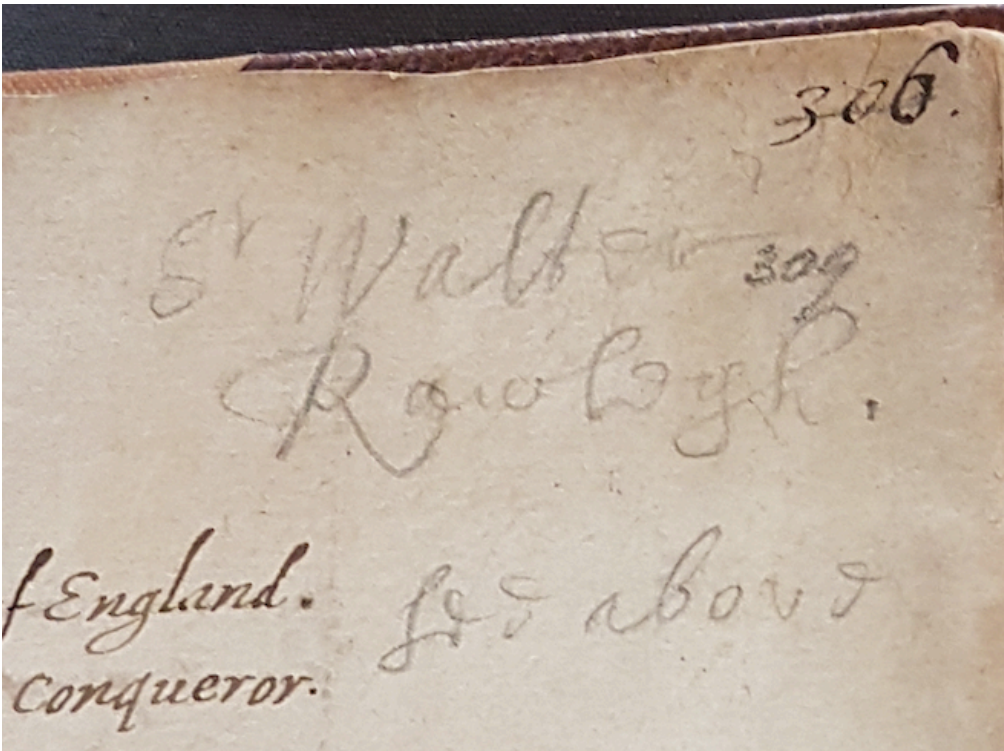 306.
Sr Walter 309
Rawlegh.
f England. see above
Conqueror.